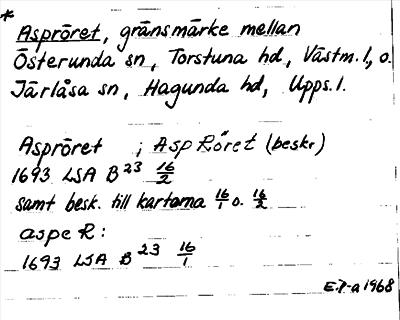 * Aspröret, gränsmärke mellan
Österunda sn, Torstuna hd, Västm. l., o.
Järlåsa sn, Hagunda hd, Upps. l.
Aspröret ; Asp Röret (beskr)
1693 LSA B 23 16/2
samt besk. till kartorna 16/1 o. 16/2
aspe R:
1693 LSA B 23 16/1
E.P-a 1968